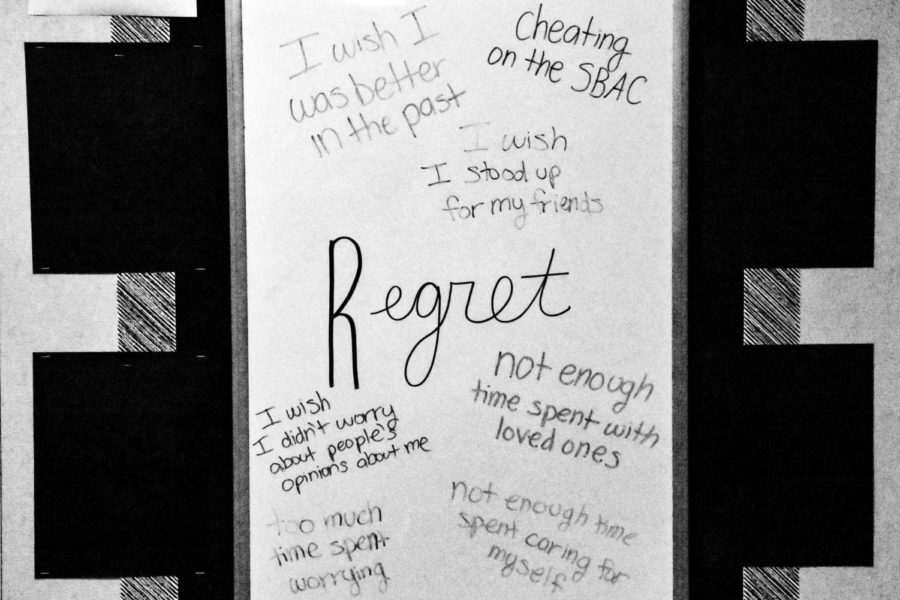 I wish I
was better
in the past
Cheating
on the SBAC
I wish
I stood up
for my friends
Regret
not enough
time spent with
loved ones
I wish
I didn't worry
about people's
opinions about me
too much
time spent
worrying
not enough time
spent caring for
myself